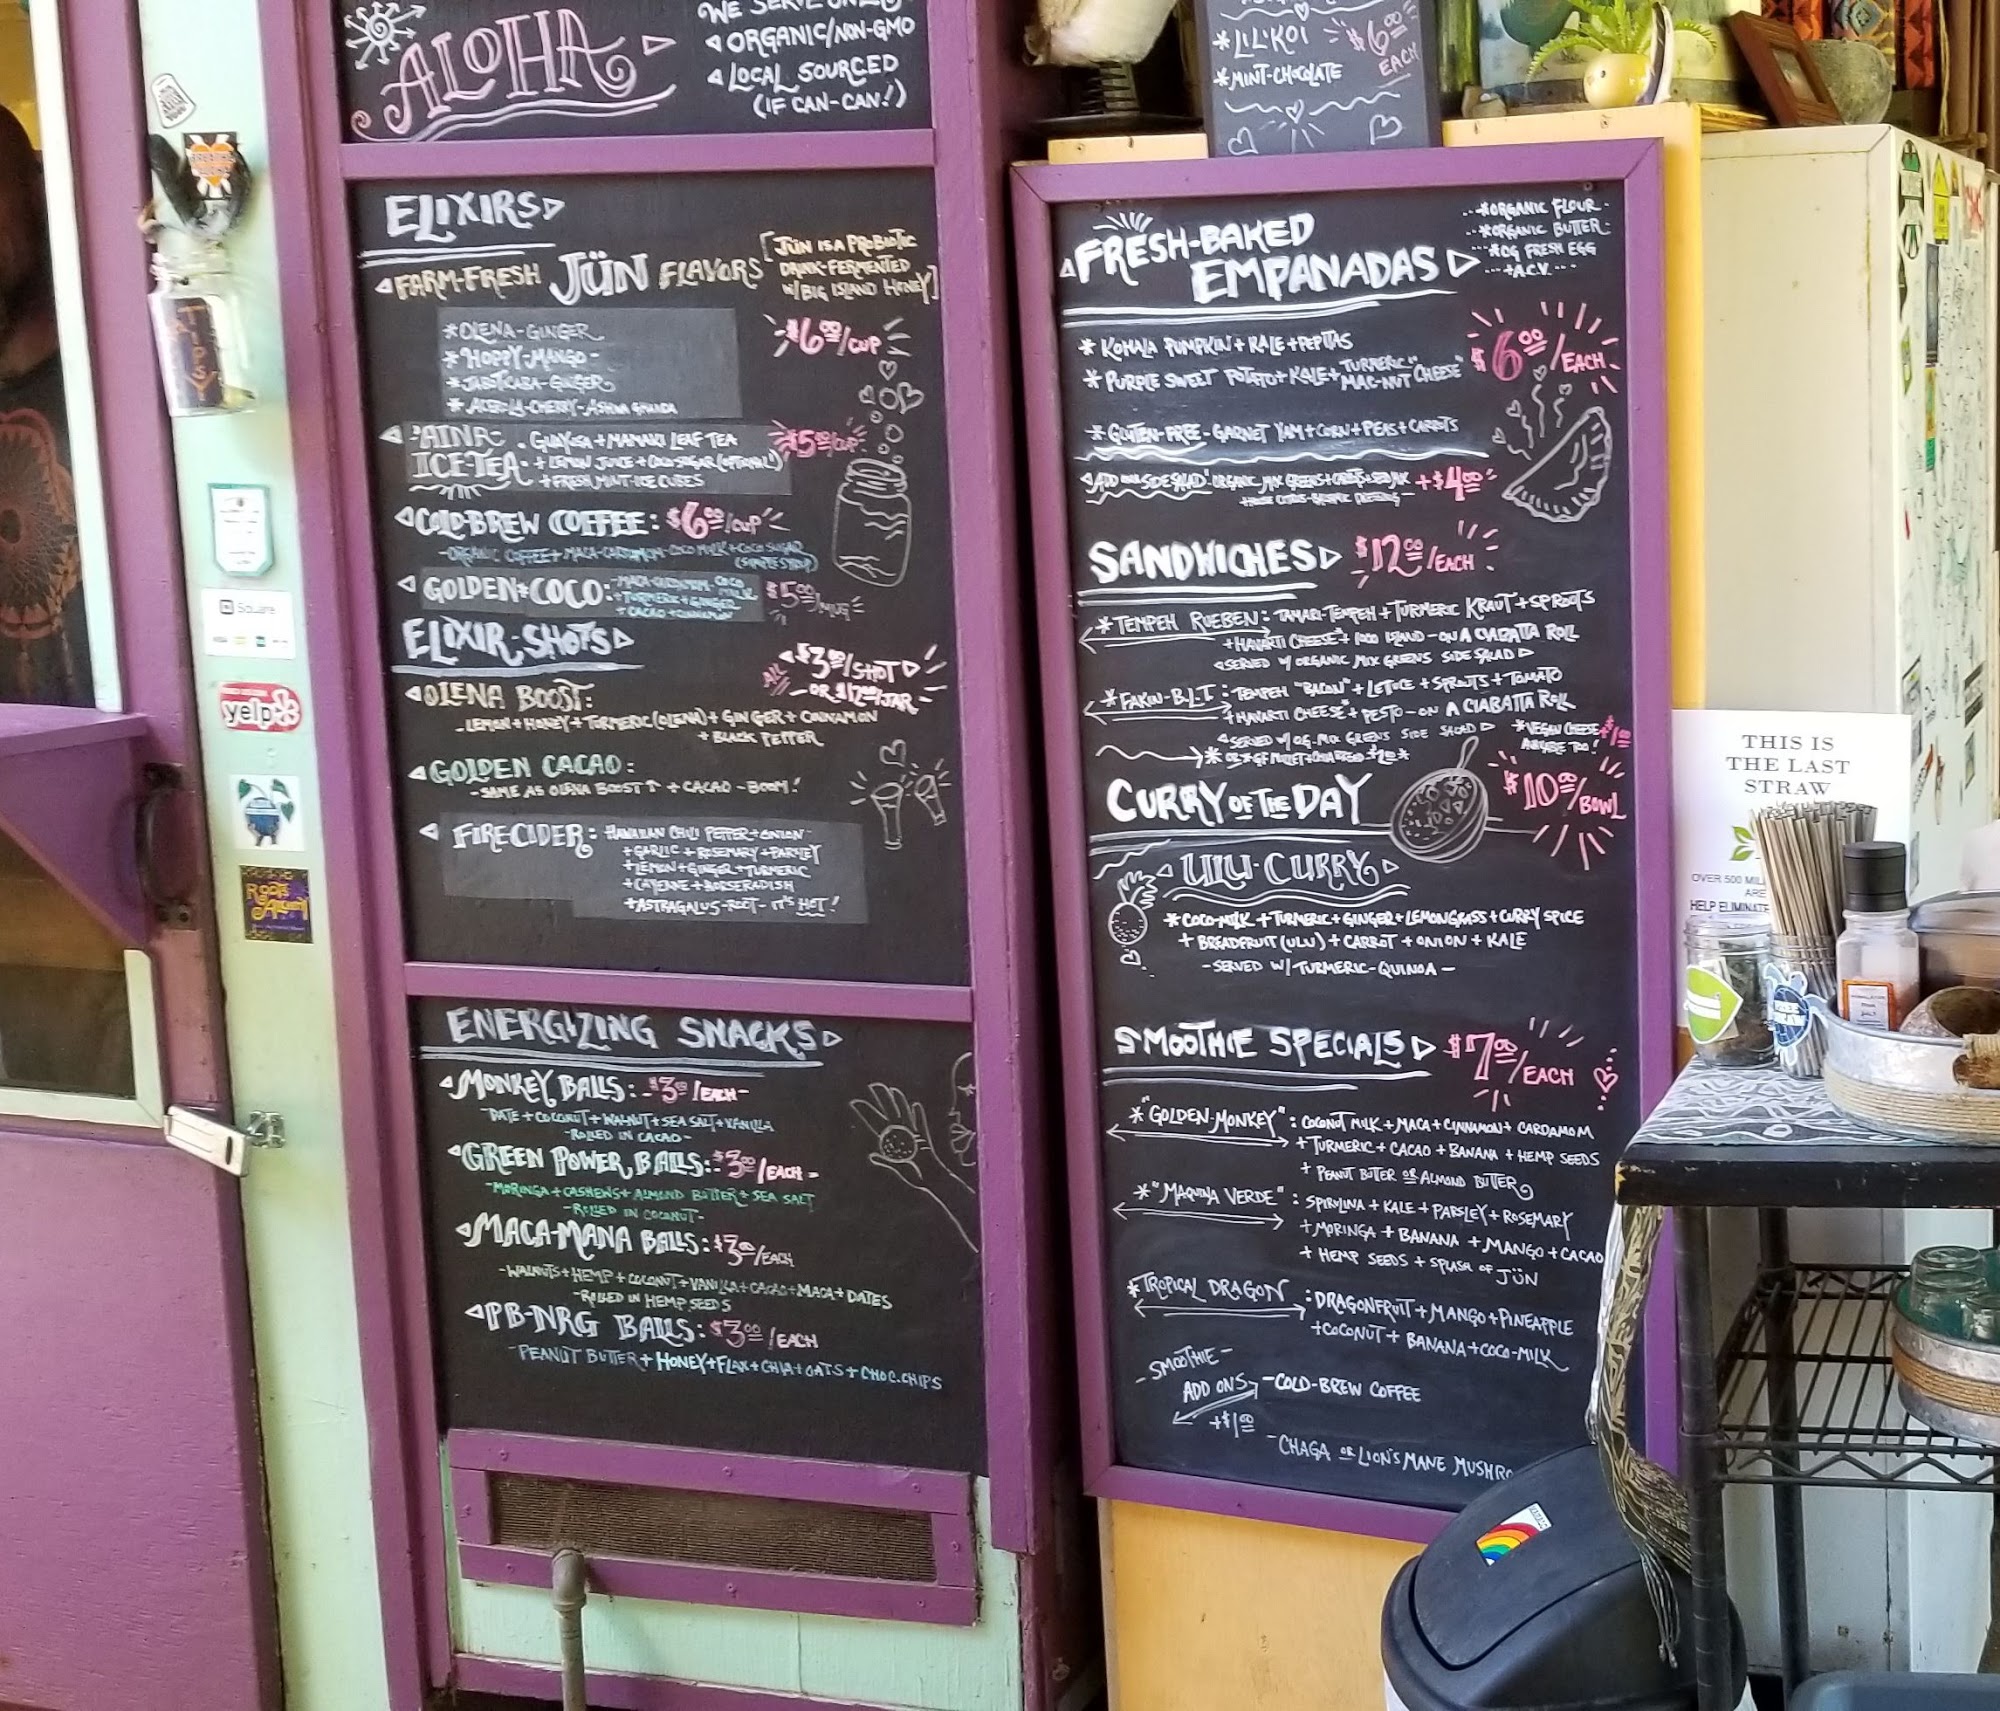 ALOHA
ORGANIC/NON-GMO
LOCAL SOURCED
(IF CAN-CAN!)
LILIKOI
$6.00 EACH
MINT-CHOCOLATE
ELIXIRS
FARM-FRESH JÜN FLAVORS
[JÜN IS A PROBIOTIC
DRINK-FERMENTED
W/BIG ISLAND HONEY]
* OLENA-GINGER
* HOPPY-MANGO-
* JABOTICABA-GINGER
* ACEROLA-CHERRY-ASHWAGANDA
$6.00/CUP
'AINA ICE-TEA: GUAYUSA + MAMAKI LEAF TEA
+ LEMON JUICE + COCO-SUGAR (OPTIONAL)
+ FRESH MINT-ICE CUBES
$5.00/CUP
COLD-BREW COFFEE: $6.00/CUP
-ORGANIC COFFEE + MACA-CARDAMOM-COCO MILK + COCO SUGAR
(SIMPLE SYRUP)
GOLDEN*COCO: -MACA-CARDAMOM COCO MILK
+ TURMERIC + GINGER
+ CACAO + CINNAMON
$5.00/MUG
ELIXIR-SHOTS
ALL $3.00/SHOT
-OR $12.00/JAR
OLENA BOOST:
-LEMON + HONEY + TURMERIC (OLENA) + GINGER + CINNAMON
+ BLACK PEPPER
GOLDEN CACAO:
-SAME AS OLENA BOOST ↑ + CACAO-BOOM!
FIRE CIDER: HAWAIIAN CHILI PEPPER + ONION
+ GARLIC + ROSEMARY + PARSLEY
+ LEMON + GINGER + TURMERIC
+ CAYENNE + HORSERADISH
+ ASTRAGALUS-ROOT- IT'S HOT!
ENERGIZING SNACKS
MONKEY BALLS: $3.00/EACH-
-DATE + COCONUT + WALNUT + SEA SALT + VANILLA
-ROLLED IN CACAO-
GREEN POWER BALLS: $3.00/EACH-
-MORINGA + CASHEWS + ALMOND BUTTER + SEA SALT
-ROLLED IN COCONUT-
MACA-MANA BALLS: $3.00/EACH
-WALNUTS + HEMP + COCONUT + VANILLA + CACAO + MACA + DATES
-ROLLED IN HEMP SEEDS
PB-NRG BALLS: $3.00/EACH
-PEANUT BUTTER + HONEY + FLAX + CHIA + OATS + CHOC.CHIPS
FRESH-BAKED
EMPANADAS
*ORGANIC FLOUR
*ORGANIC BUTTER
*OG FRESH EGG
+A.C.V.
* KOHALA PUMPKIN + KALE + PEPITAS
* PURPLE SWEET POTATO + KALE + TURMERIC MAC-NUT "CHEESE"
$6.00/EACH
* GLUTEN-FREE-GARNET YAM + CORN + PEAS + CARROTS
ADD ON A SIDE SALAD: ORGANIC MIX GREENS + CARROTS + SEED MIX +$4.00
+ HOUSE CITRUS-BALSAMIC DRESSING-
SANDWICHES $12.00/EACH
* TEMPEH RUEBEN: TAMARI-TEMPEH + TURMERIC KRAUT + SPROTS
+ HAVARTI CHEESE* + 1000 ISLAND-ON A CIABATTA ROLL
SERVED W/ ORGANIC MIX GREENS SIDE SALAD
* FAKIN-B-L-T: TEMPEH "BACON" + LETUCE + SPROUTS + TOMATO
+ HAVARTI CHEESE* + PESTO-ON A CIABATTA ROLL
SERVED W/ OG-MIX GREENS SIDE SALAD
*VEGAN CHEESE +$1.00
AVAILABLE TOO!
CURRY OF THE DAY
$10.00/BOWL
ULU-CURRY
* COCO-MILK + TURMERIC + GINGER + LEMONGRASS + CURRY SPICE
+ BREADFRUIT (ULU) + CARROT + ONION + KALE
-SERVED W/ TURMERIC-QUINOA-
SMOOTHIE SPECIALS $7.00/EACH
* "GOLDEN-MONKEY": COCONUT MILK + MACA + CINNAMON + CARDAMOM
+ TURMERIC + CACAO + BANANA + HEMP SEEDS
+ PEANUT BUTTER OR ALMOND BUTTER
* "MAQUINA VERDE": SPIRULINA + KALE + PARSLEY + ROSEMARY
+ MORINGA + BANANA + MANGO + CACAO
+ HEMP SEEDS + SPLASH OF JÜN
* TROPICAL DRAGON: DRAGONFRUIT + MANGO + PINEAPPLE
+ COCONUT + BANANA + COCO-MILK
-SMOOTHIE-
ADD ONS -COLD-BREW COFFEE
+$1.00
-CHAGA OR LION'S MANE MUSHRO
TIPSY
BREATHE
Square
yelp
ROOTS
THIS IS
THE LAST
STRAW
OVER 500 MIL
ARE
HELP ELIMINATE